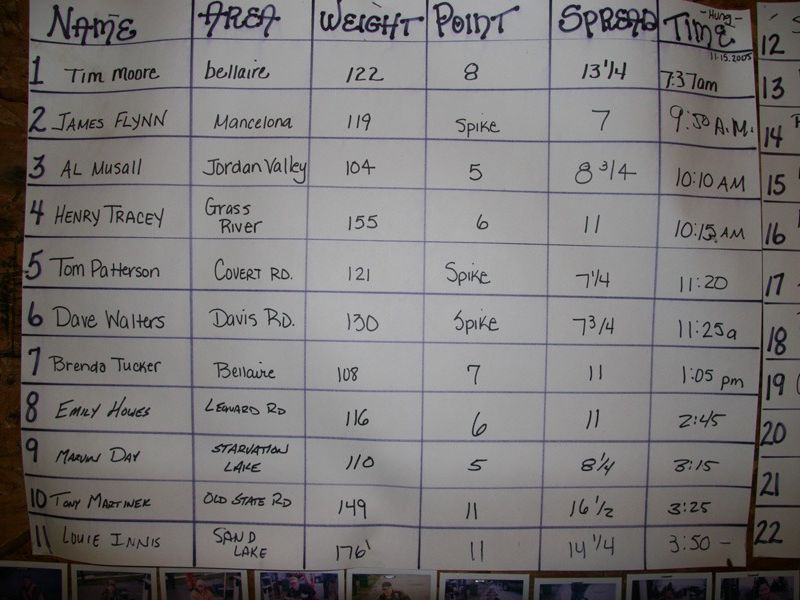 NAME AREA WEIGHT POINT SPREAD -Hung- TIME
11.15.2005
1 Tim Moore bellaire 122 8 13 1/4 7:37am
2 JAMES FLYNN Mancelona 119 Spike 7 9:50 A.M.
3 AL Musall Jordan Valley 104 5 8 3/4 10:10 AM
4 HENRY TRACEY Grass River 155 6 11 10:15 AM
5 Tom Patterson COVERT RD. 121 Spike 7 1/4 11:20
6 Dave Walters Davis RD. 130 Spike 7 3/4 11:25a
7 Brenda Tucker Bellaire 108 7 11 1:05 pm
8 EMILY HOWES LEONARD RD 116 6 11 2:45
9 MARVIN DAY STARVATION LAKE 110 5 8 1/4 3:15
10 TONY MARTINEK OLD STATE RD 149 11 16 1/2 3:25
11 LOUIE INNIS SAND LAKE 176 11 14 1/4 3:50 -
12
13
14
15
16
17
18
19
20
21
22